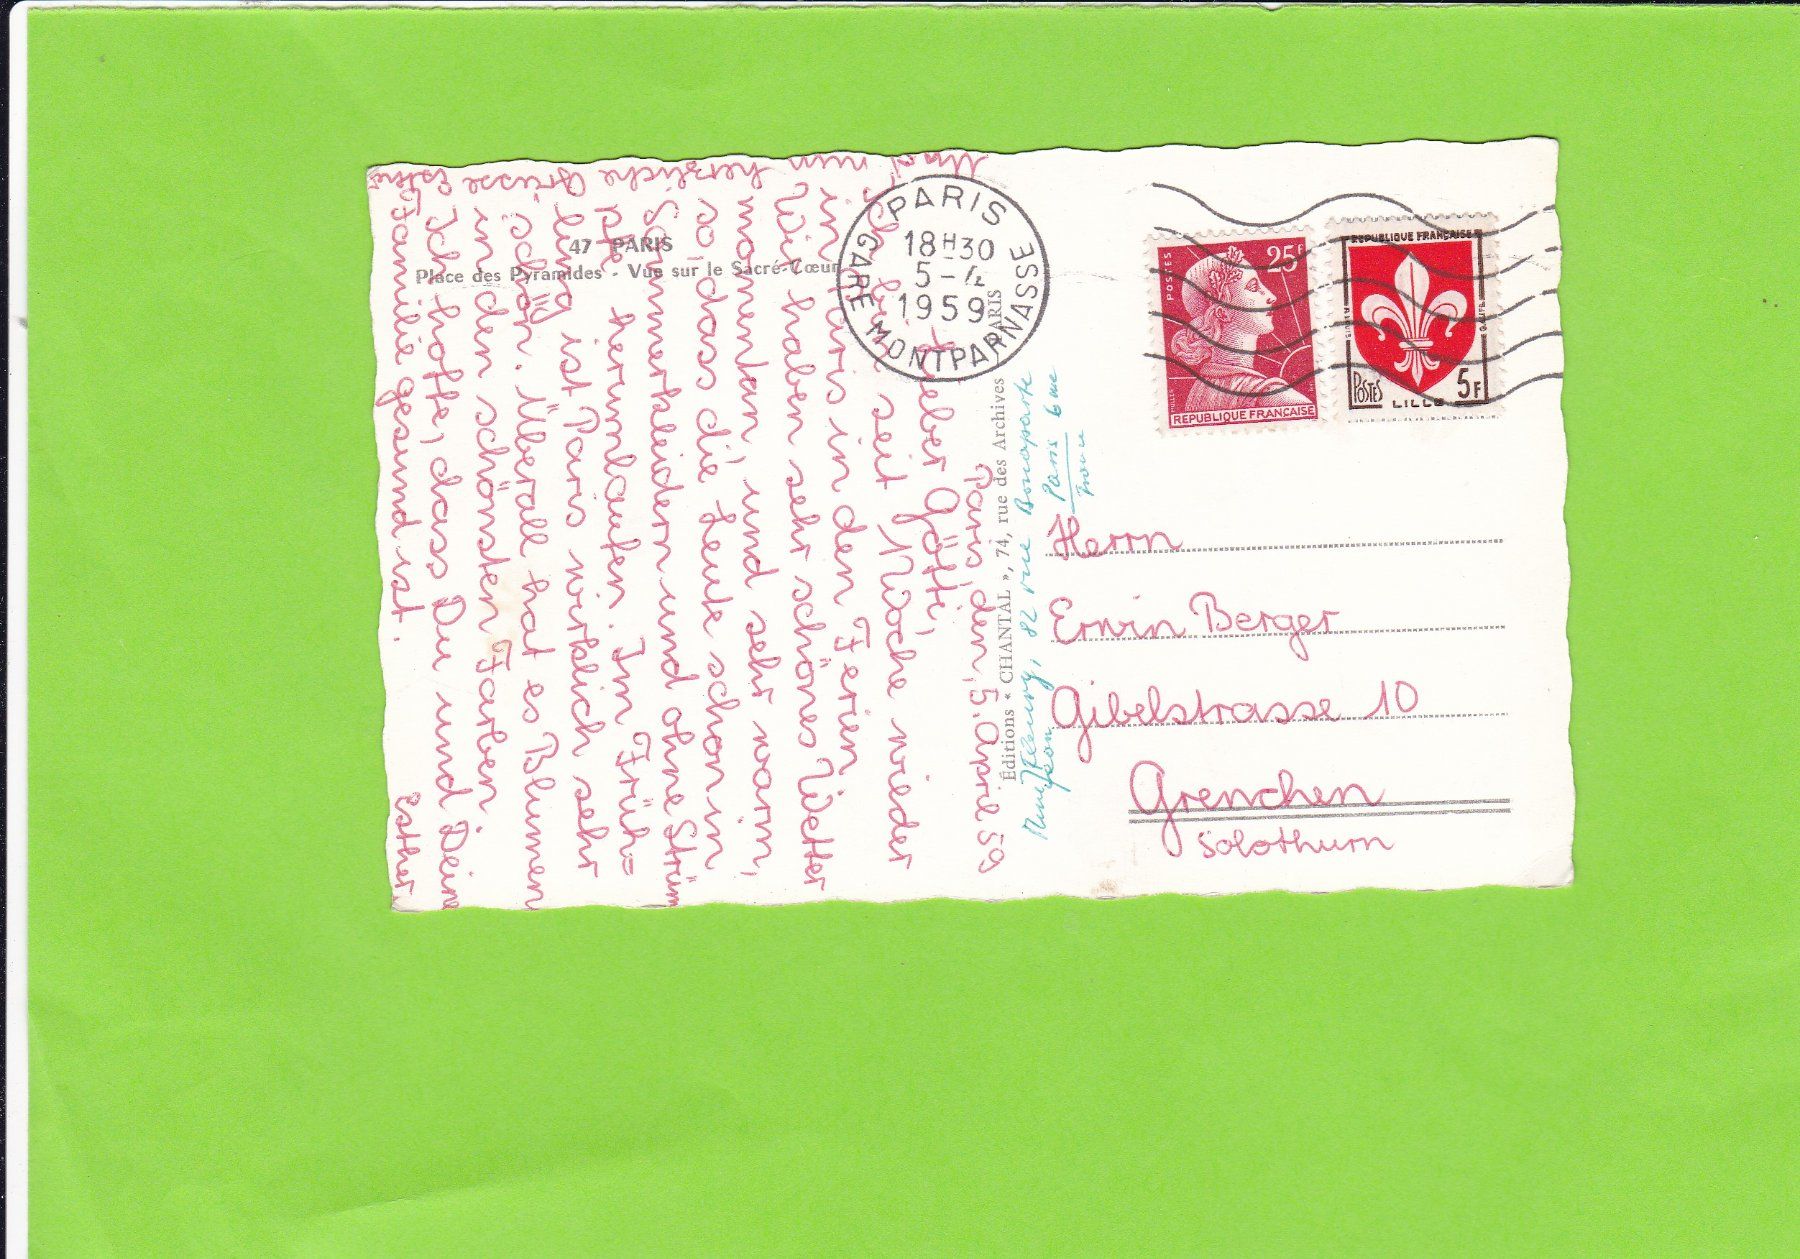 47 PARIS
Place des Pyramides - Vue sur le Sacré-Cœur
PARIS
GARE MONTPARNASSE
18H30
5-4
1959
POSTES
25F
REPUBLIQUE FRANÇAISE
REPUBLIQUE FRANÇAISE
POSTES
5F
LILLE
Paris, den, 5. April 59
Lieber Götti,
seit 1 Woche wieder
in Paris in den Ferien
Wir haben sehr schönes Wetter
momentan, und sehr warm,
so, dass die Leute schon in
Sommerkleidern und ohne Strüm
pfe herumlaufen. Im Früh=
ling ist Paris wirklich sehr
schön. Überall hat es Blumen
in den schönsten Farben
Ich hoffe, dass Du und Deine
Familie gesund ist.
Und nun
herzliche Grüsse Esther
Esther
Éditions « CHANTAL », 74, rue des Archives PARIS
82 rue Bonaparte
Paris 6me
Herrn
Erwin Berger
Gibelstrasse 10
Grenchen
Solothurn